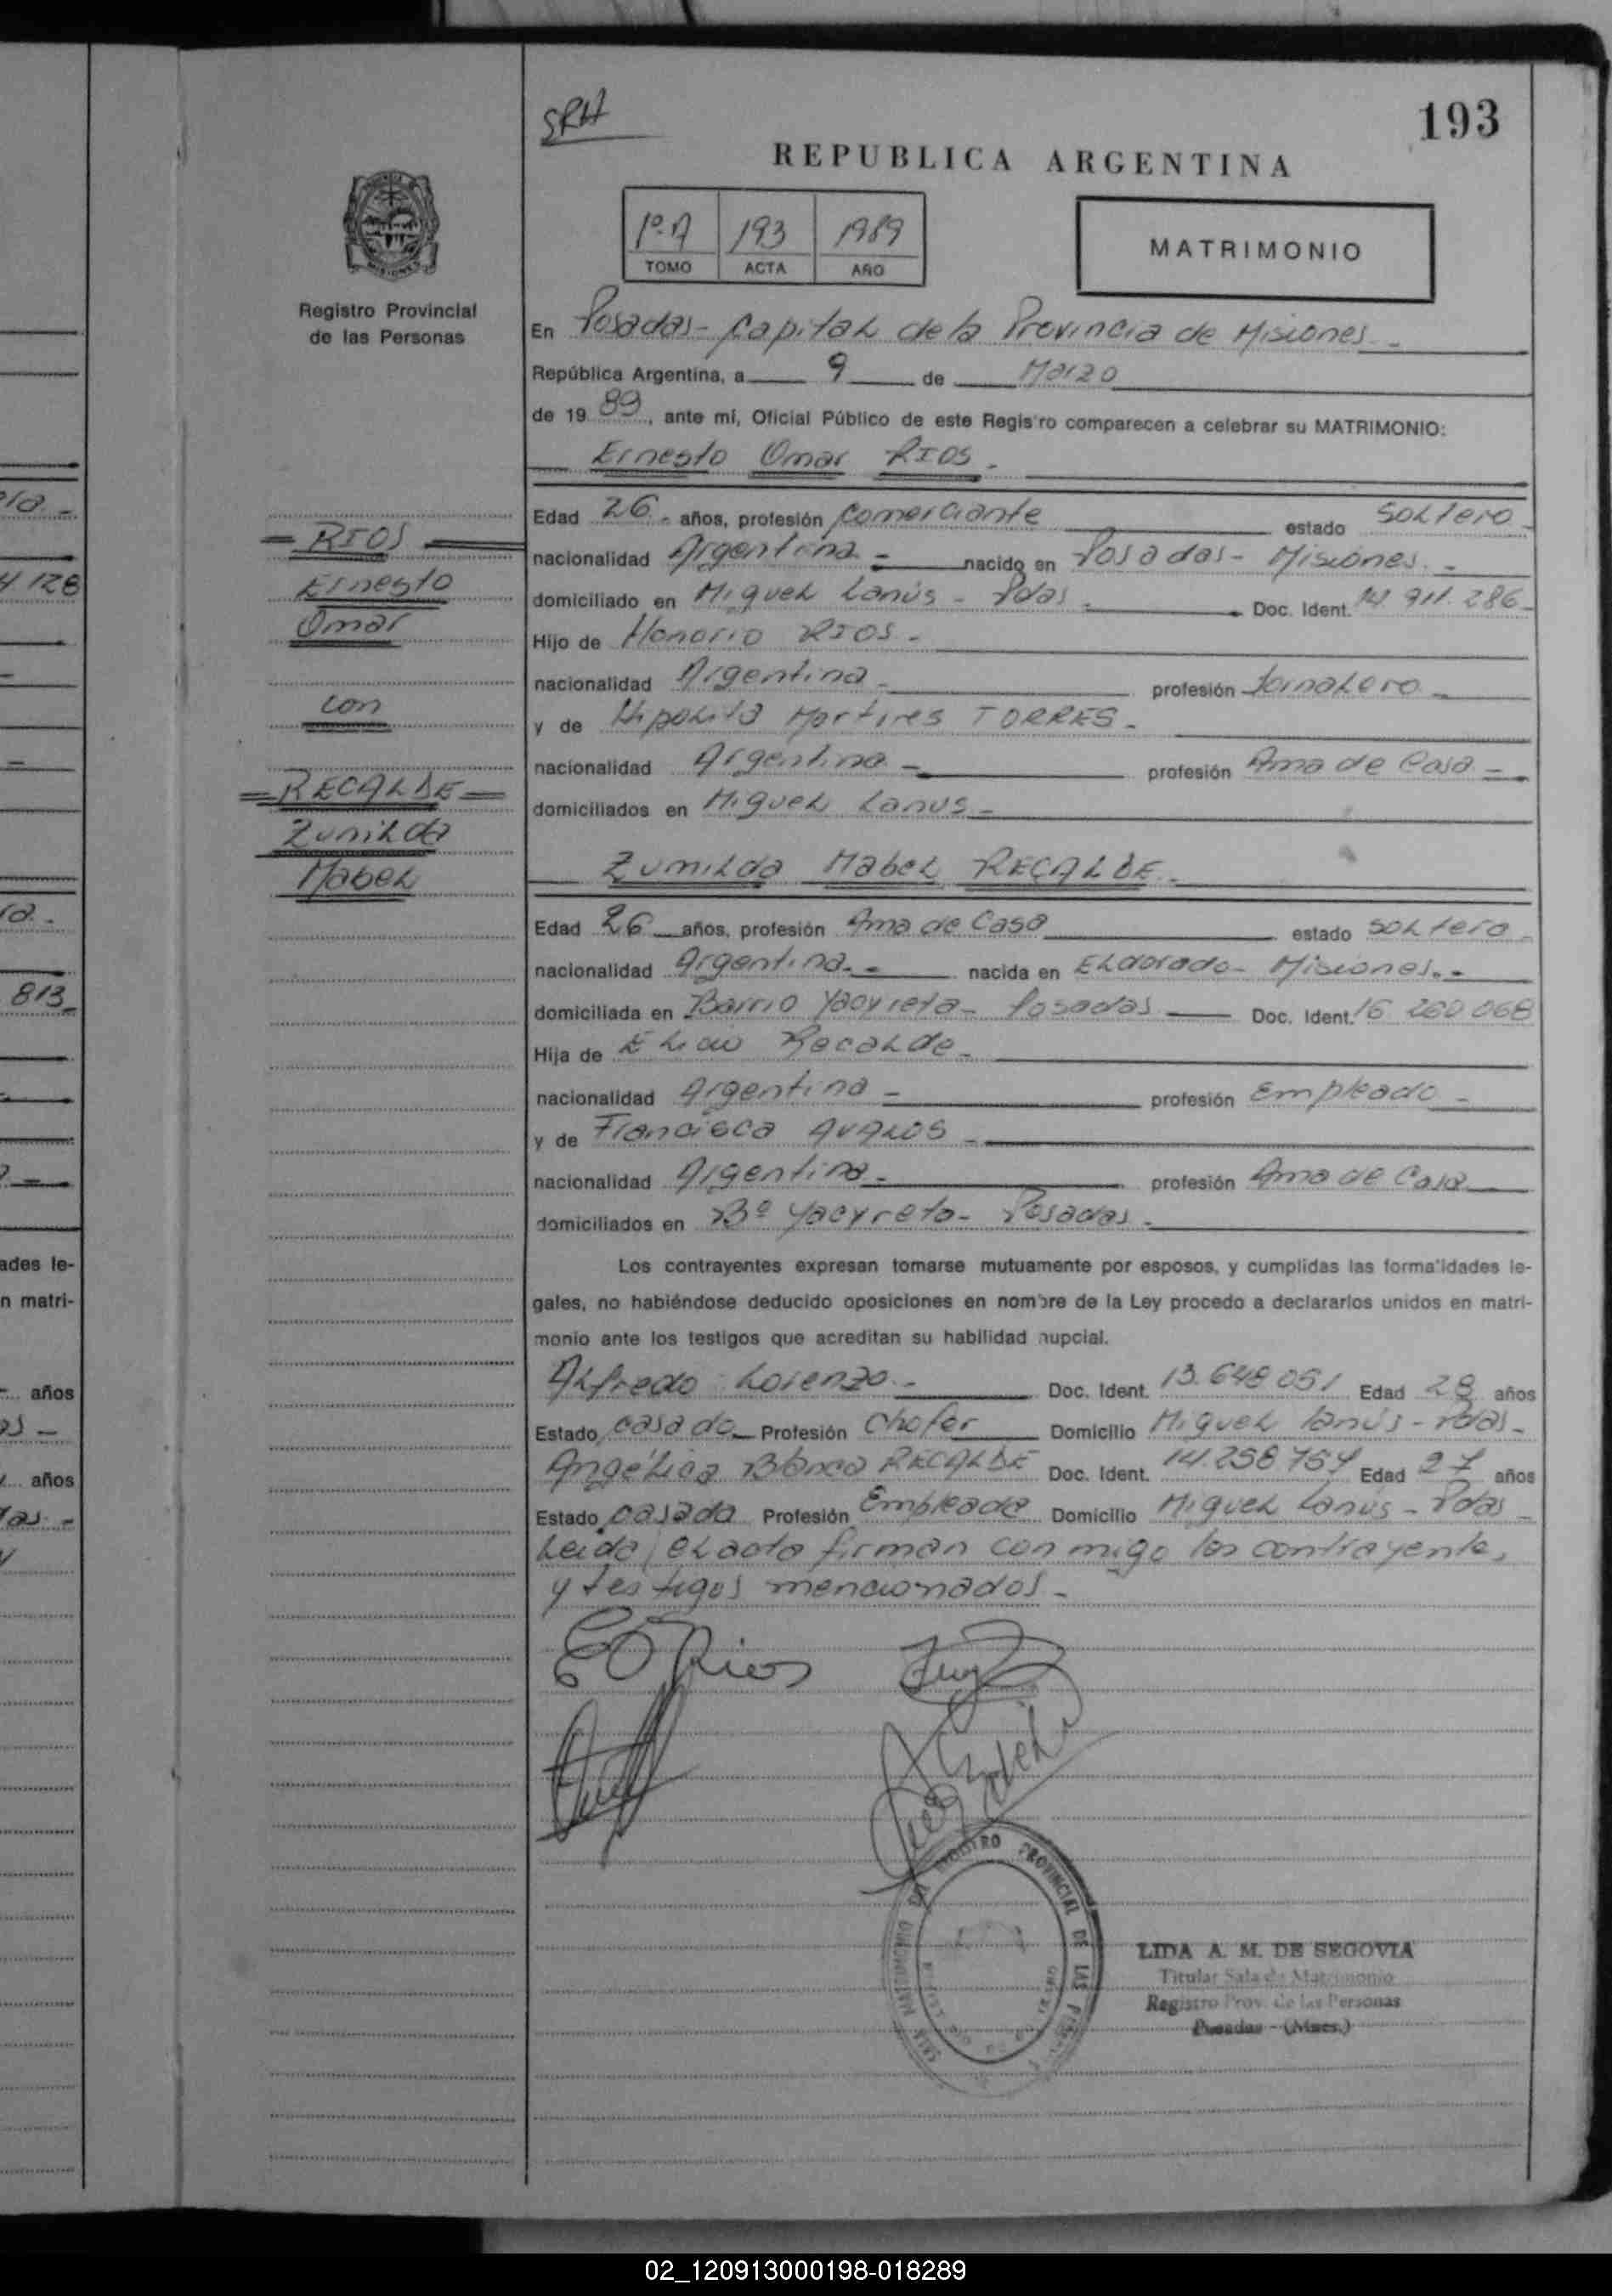 SRH
193
REPUBLICA ARGENTINA
1º A 193 1989
TOMO ACTA AÑO
MATRIMONIO
MISIONES
Registro Provincial
de las Personas
En Posadas - Capital de la Provincia de Misiones -
República Argentina, a 9 de Marzo
de 19 89, ante mí, Oficial Público de este Registro comparecen a celebrar su MATRIMONIO:
Ernesto Omar RIOS -
Edad 26 - años, profesión Comerciante estado Soltero -
= RIOS =
nacionalidad Argentina - nacido en Posadas - Misiones -
Ernesto
domiciliado en Miguel Lanús - Pdas - Doc. Ident. 14 911.286 -
Omar
Hijo de Honorio RIOS -
nacionalidad Argentina - profesión Jornalero -
con
y de Hipolita Martires TORRES -
nacionalidad Argentina - profesión Ama de Casa -
= RECALDE =
domiciliados en Miguel Lanus -
Zunilda
Mabel
Zunilda Mabel RECALDE -
Edad 26 años, profesión Ama de Casa estado Soltera -
nacionalidad Argentina - nacida en Eldorado - Misiones -
domiciliada en Barrio Yacyreta - Posadas Doc. Ident. 16 260 068
Hija de Recalde -
nacionalidad Argentina - profesión Empleado -
y de Francisca AVALOS -
nacionalidad Argentina - profesión Ama de Casa
domiciliados en Bº Yacyreta - Posadas -
Los contrayentes expresan tomarse mutuamente por esposos, y cumplidas las formalidades le-
gales, no habiéndose deducido oposiciones en nombre de la Ley procedo a declararlos unidos en matri-
monio ante los testigos que acreditan su habilidad nupcial.
Alfredo Lorenzo - Doc. Ident. 13.648 051 Edad 28 años
Estado casado Profesión Chofer Domicilio Miguel Lanús - Pdas -
Angélica Blanca RECALDE Doc. Ident. 14.258 754 Edad 27 años
Estado casada Profesión Empleada Domicilio Miguel Lanús - Pdas -
Leida el acta firman con migo los contrayentes
y testigos mencionados -
EO Rios
REGISTRO PROVINCIAL DE LAS
LIDA A. M. DE SEGOVIA
Titular Sala de Matrimonio
Registro Prov. de las Personas
Posadas - (Mnes.)
ra -
4.128
813
ades le-
n matri-
años
años
02_120913000198-018289